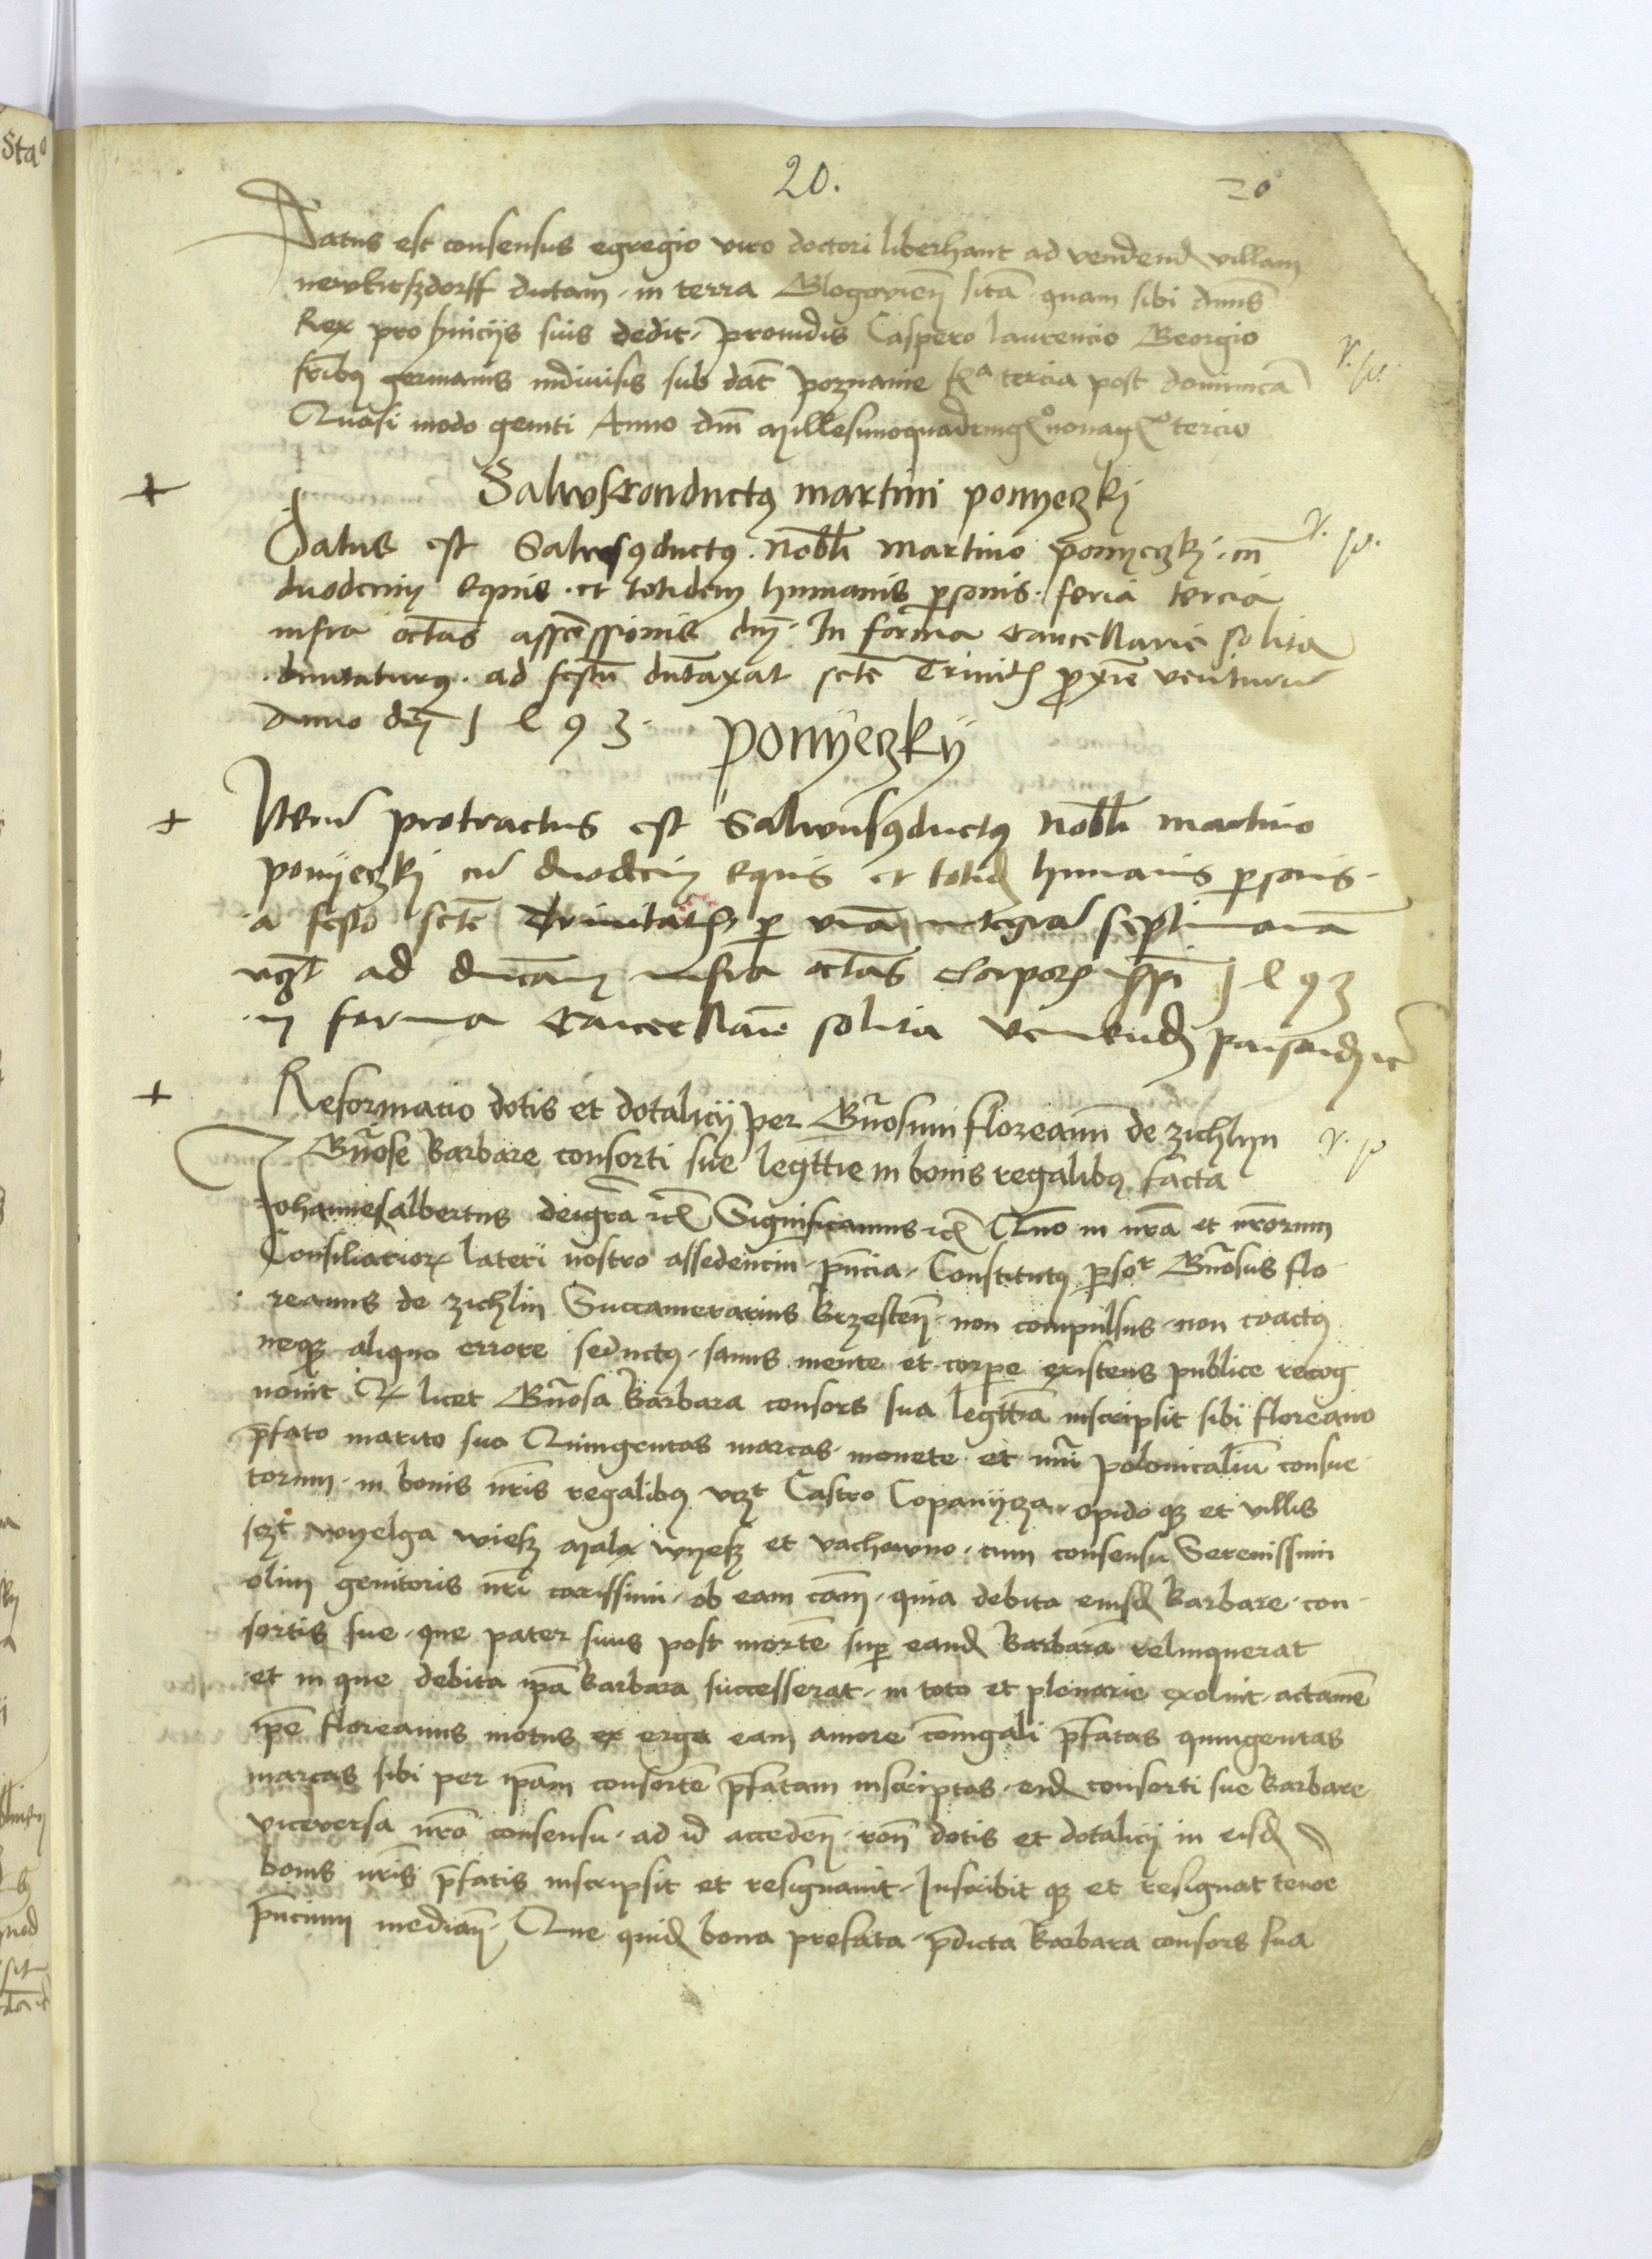 20.
20
Datus est consensus egregio viro doctori liberhant ad vendend villam
newkirszdorff dictam in terra Glogovien sitā quam sibi dnus
Rex pro serviciis suis dedit providis Caspero laurencio Georgio
fribus germanis indivisis sub dat poznanie fa tercia post dominicā
Quasi modo geniti Anno dni Millesimoquadringo nonago tercio
Salvusconductus martini ponyeczkj
Datus est Salvusconductus nobli martino ponyeczkj cu
duodecim equis et totidem humanis personis feria tercia
infra octas asscēssionis dni In forma cancellarie solita
duraturus ad festu dutaxat scte Trinitis proxie venturu
Anno dni 1493
ponyeczky
Iteru protractus est Salvusconductus nobli martino
ponyeczkj cu duodecim equis et totid humanis personis
a festo scte Trinitatis per una integra septimanā
vzt ad dnicam infra octas Corporis xpi 1493
in forma cancellarie solita
Reformatio dotis et dotalicij per Gnosum floreanu de zichlyn
Gnose Barbare consorti sue legittie in bonis regalibus facta
Johannesalbertus deigra etc Significamus etc Quo in nra et nrorum
Consiliarior lateri nostro assedenciu pncia Constitutus persot Gnosus flo
reanus de zichlin Succamerarius Brzesten non compulsus non coactus
neque aliquo errore seductus sanus mente et corpe existens publice recog
novit Q licet Gnosa Barbara consors sua legittia inscripsit sibi floreano
pfato marito suo Quingentas marcas monete et nuri polonicaliu consue
torum in bonis nris regalibus vzt Castro Copanycza opido que et villis
wyelga wiesz Mala wyesz et vachowno cum consensu Serenissimi
olim genitoris nri carissimi ob eam cam quia debita eiusd Barbare con
sortis sue que pater suus post morte sup eand Barbara relinquerat
et in que debita ipa Barbara successerat in toto et plenarie exolvit actame
ipe floreanus motus ex erga eam amore coniugali pfatas quingentas
marcas sibi per ipam consorte pfatam inscriptas eid consorti sue Barbare
viceversa nro consensu ad id acceden ron dotis et dotalicij in eisd
bonis nris pfatis inscripsit et resignavit Inscribit que et resignat tenoe
pncium median Que quid bona prefata pdicta Barbara consors sua